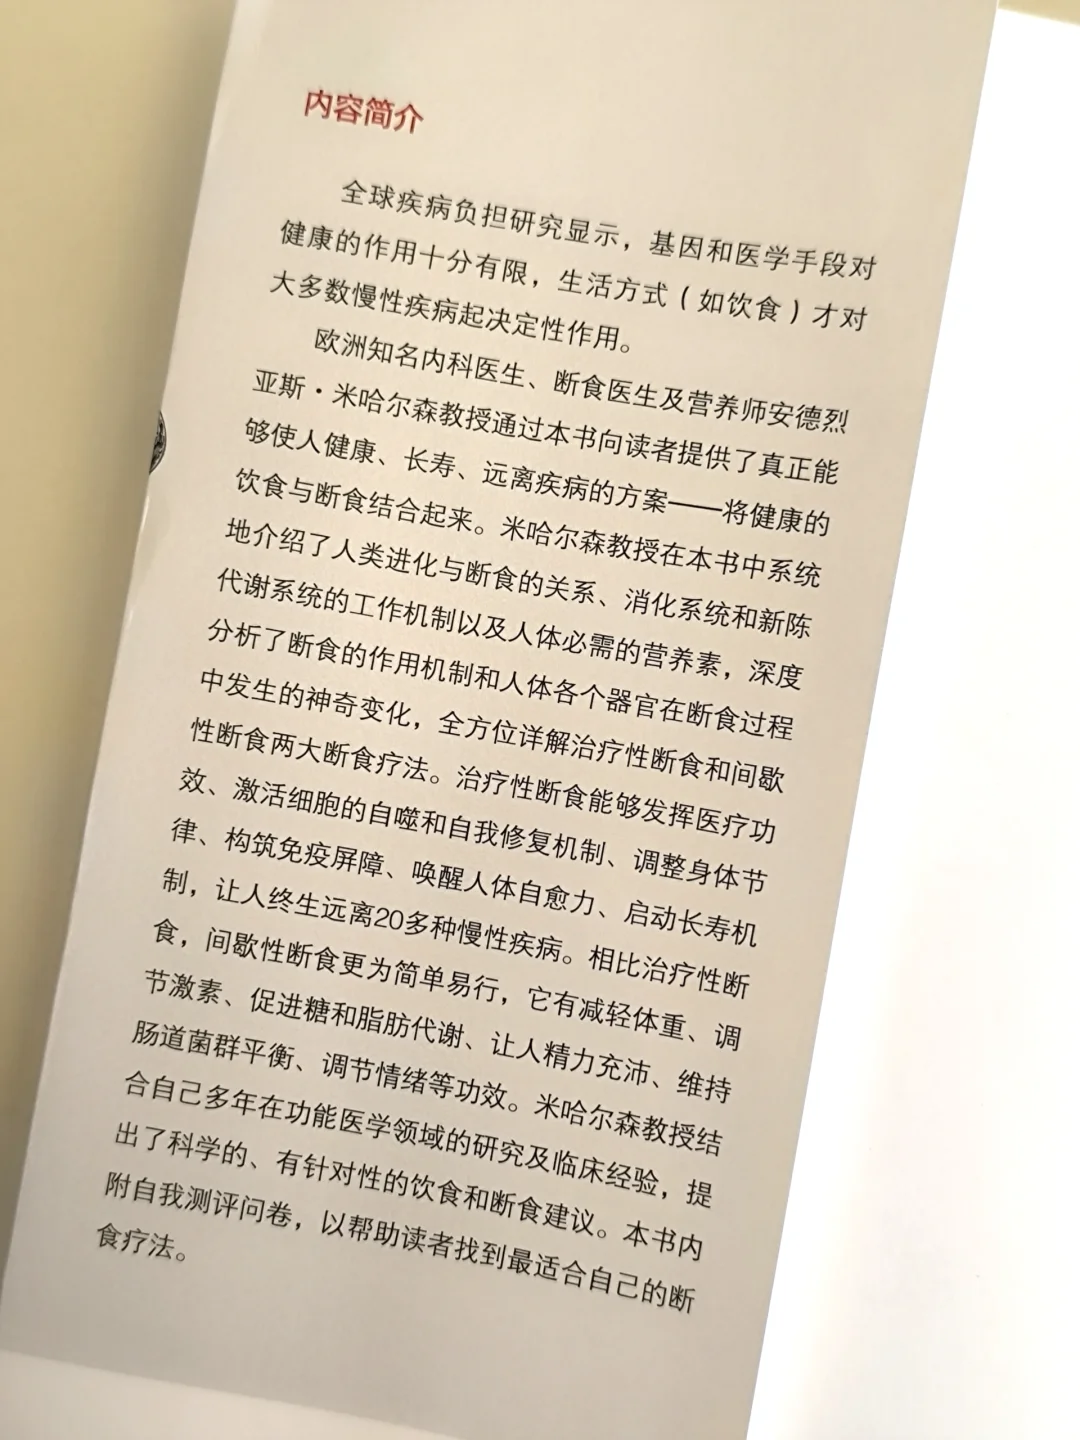 内容简介
全球疾病负担研究显示，基因和医学手段对
健康的作用十分有限，生活方式（如饮食）才对
大多数慢性疾病起决定性作用。
欧洲知名内科医生、断食医生及营养师安德烈
亚斯·米哈尔森教授通过本书向读者提供了真正能
够使人健康、长寿、远离疾病的方案——将健康的
饮食与断食结合起来。米哈尔森教授在本书中系统
地介绍了人类进化与断食的关系、消化系统和新陈
代谢系统的工作机制以及人体必需的营养素，深度
分析了断食的作用机制和人体各个器官在断食过程
中发生的神奇变化，全方位详解治疗性断食和间歇
性断食两大断食疗法。治疗性断食能够发挥医疗功
效、激活细胞的自噬和自我修复机制、调整身体节
律、构筑免疫屏障、唤醒人体自愈力、启动长寿机
制，让人终生远离20多种慢性疾病。相比治疗性断
食，间歇性断食更为简单易行，它有减轻体重、调
节激素、促进糖和脂肪代谢、让人精力充沛、维持
肠道菌群平衡、调节情绪等功效。米哈尔森教授结
合自己多年在功能医学领域的研究及临床经验，提
出了科学的、有针对性的饮食和断食建议。本书内
附自我测评问卷，以帮助读者找到最适合自己的断
食疗法。